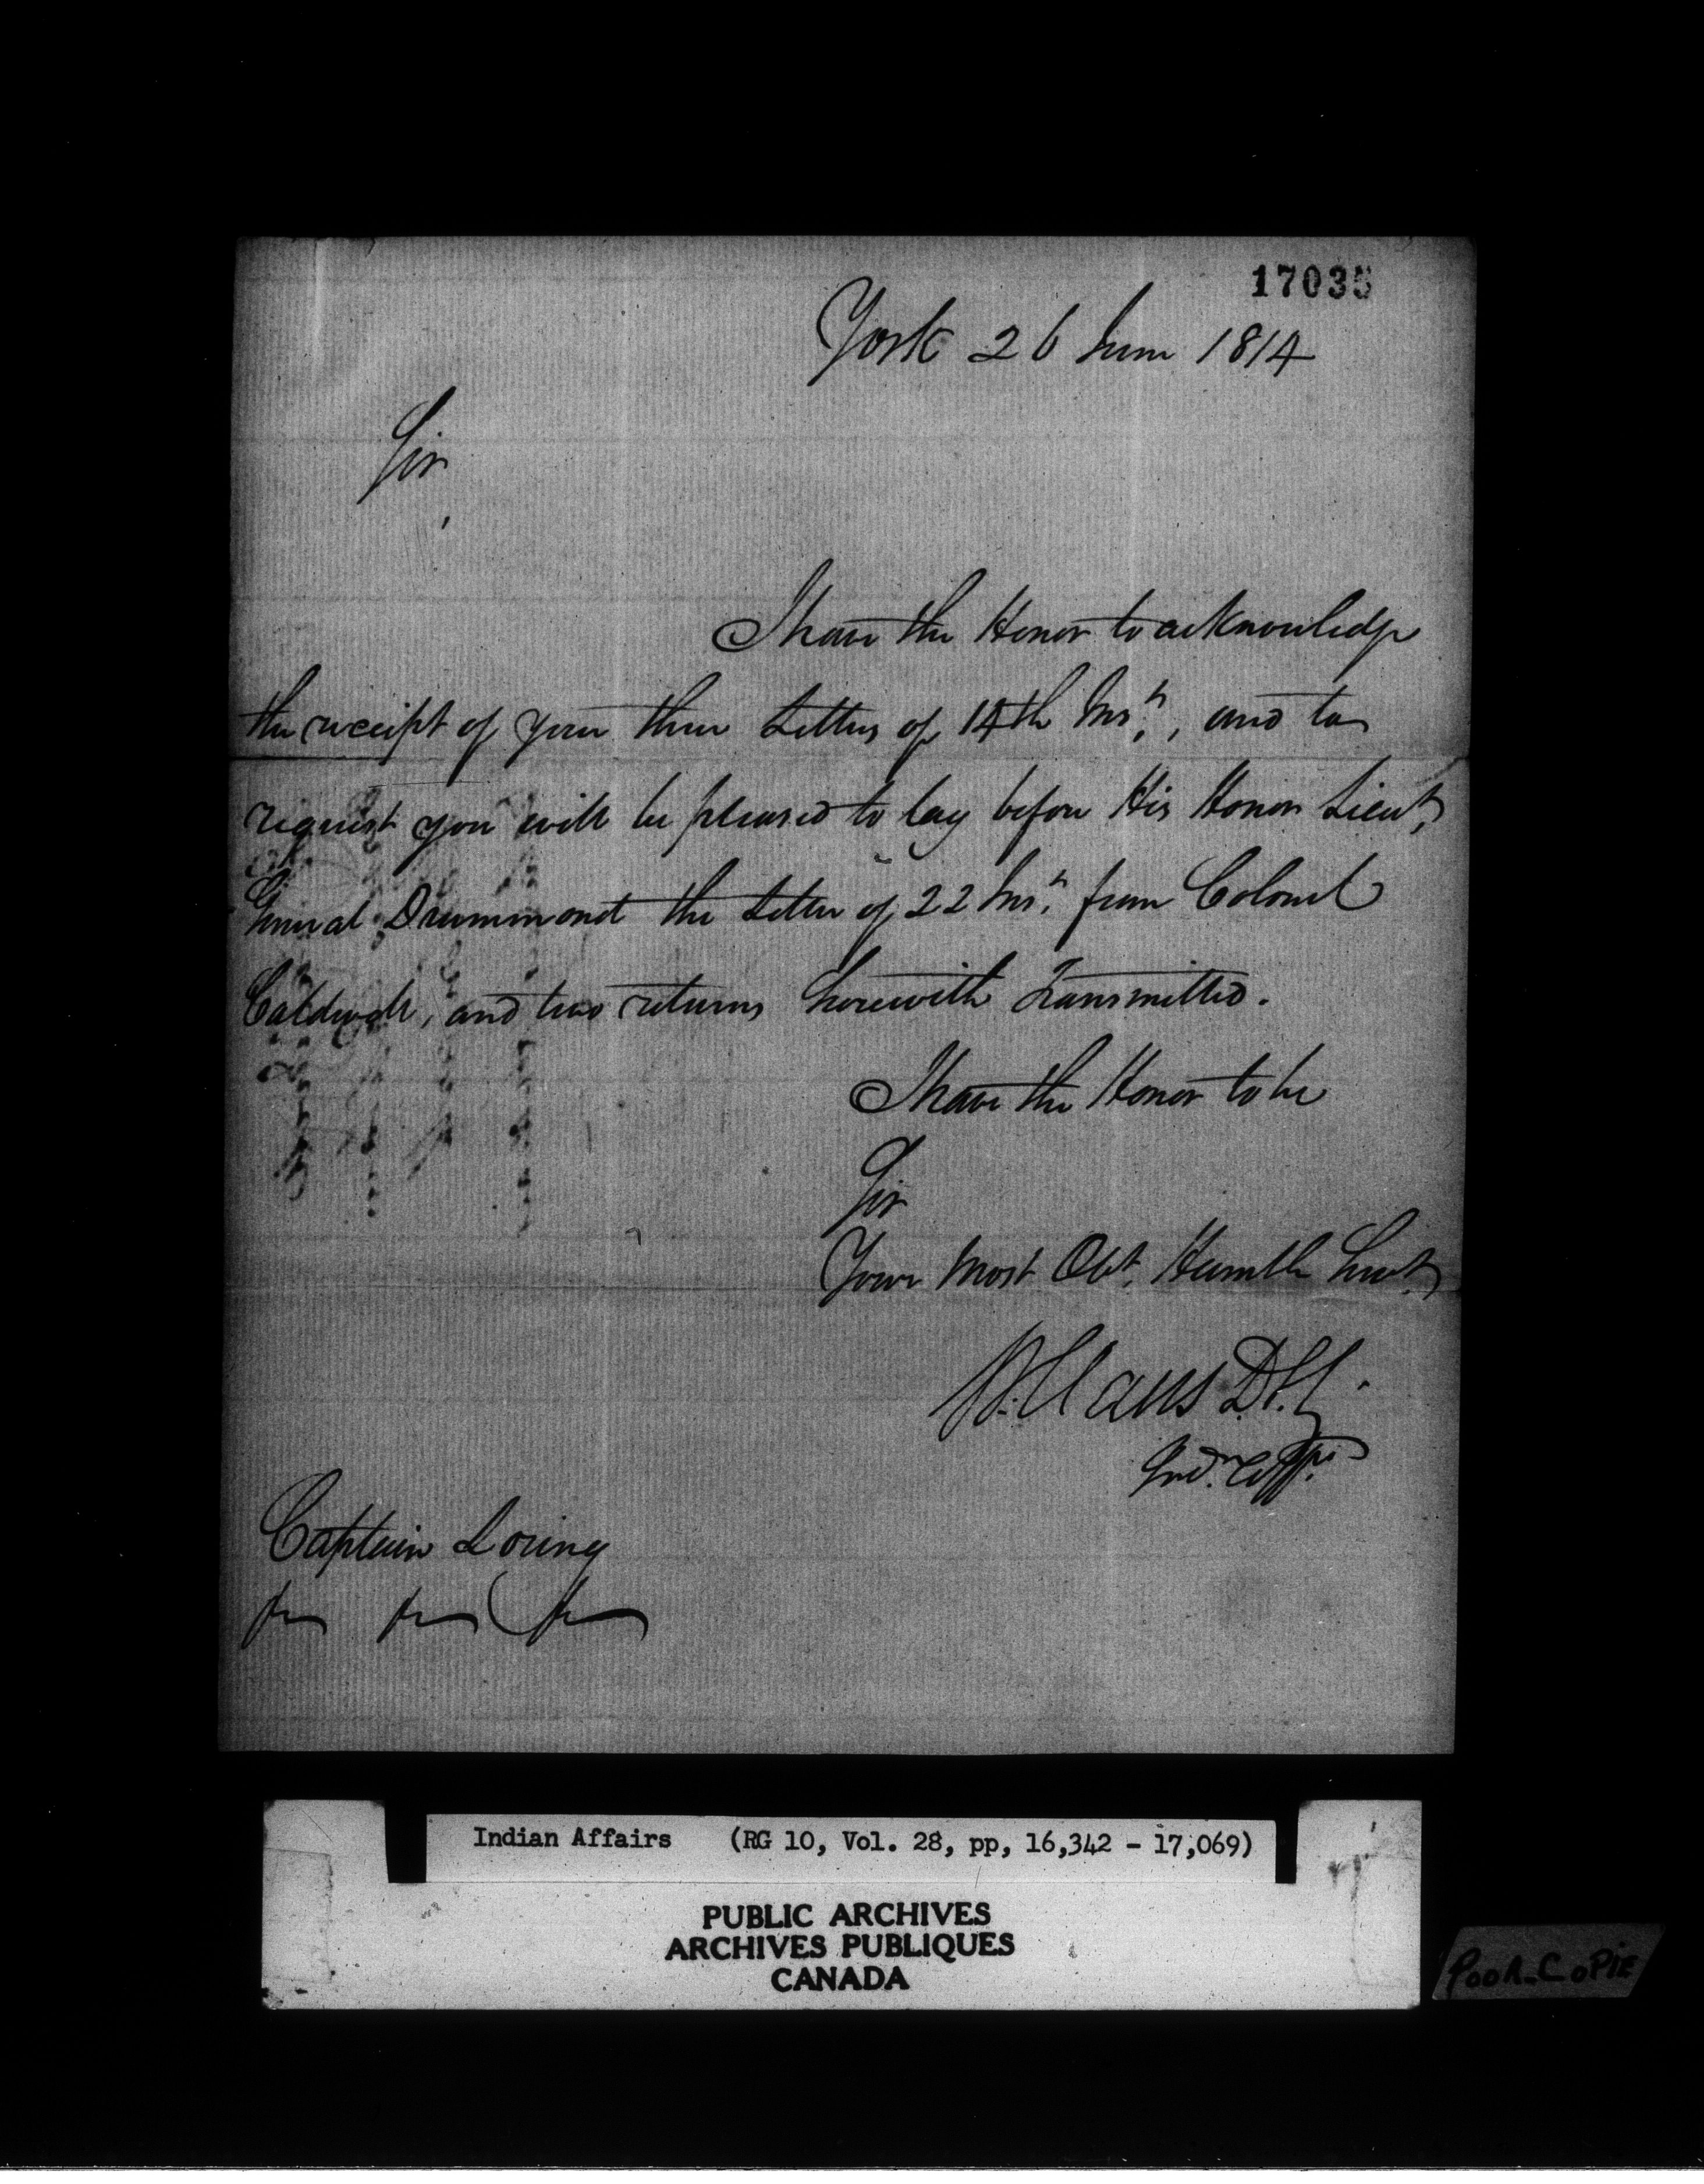 17035
York 26 June 1814
Sir
I have the Honor to acknowledge
the receipt of your three Letters of 14th Inst., and to
request you will be pleased to lay before His Honor Lieut.
General Drummond the Letter of 22 Inst. from Colonel
Caldwell, and two returns herewith Transmitted.
I have the Honor to be
Sir
Your Most Obt. Humble Servt.
W. Claus D.S.G.
Captain Loring
Indian Affairs (RG 10, Vol. 28, pp, 16,342 - 17,069)
PUBLIC ARCHIVES
ARCHIVES PUBLIQUES
CANADA
POOR COPIE